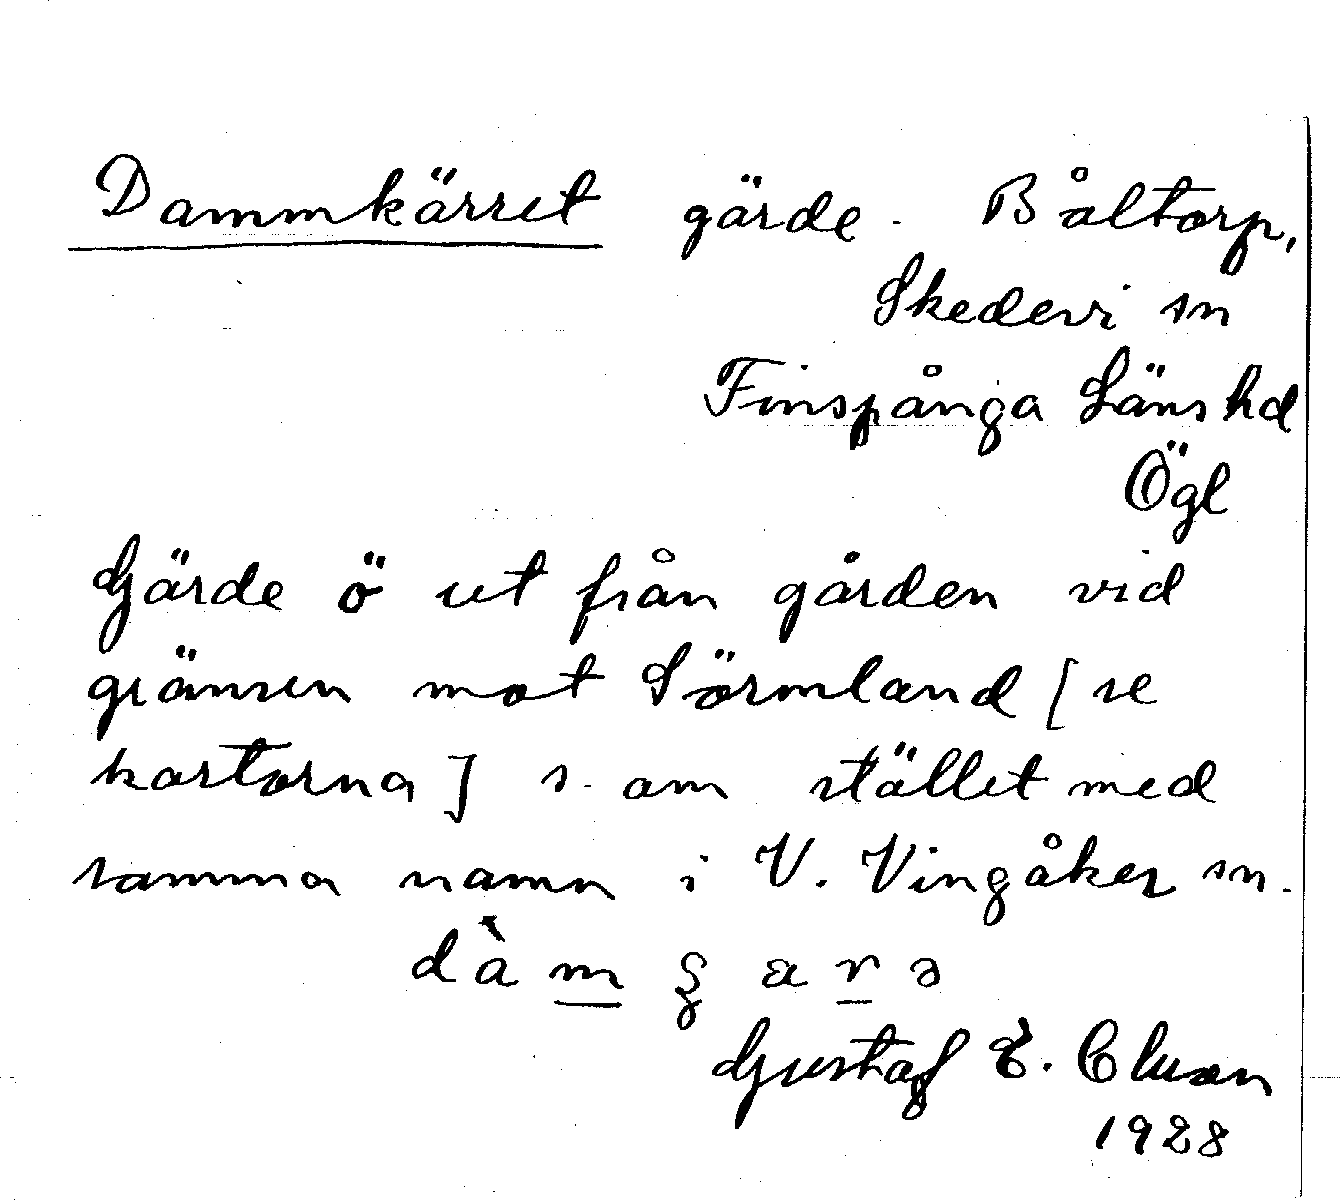 Dammkärret gärde. Båltorp,
Skedevi sn
Finspånga Läns hd
Ögl
Gärde ö ut från gården vid
gränsen mot Sörmland [se
kartorna] s. om stället med
samma namn i V. Vingåker sn.
dàm ꞔ a r ə
Gustaf E. Cluson
1928